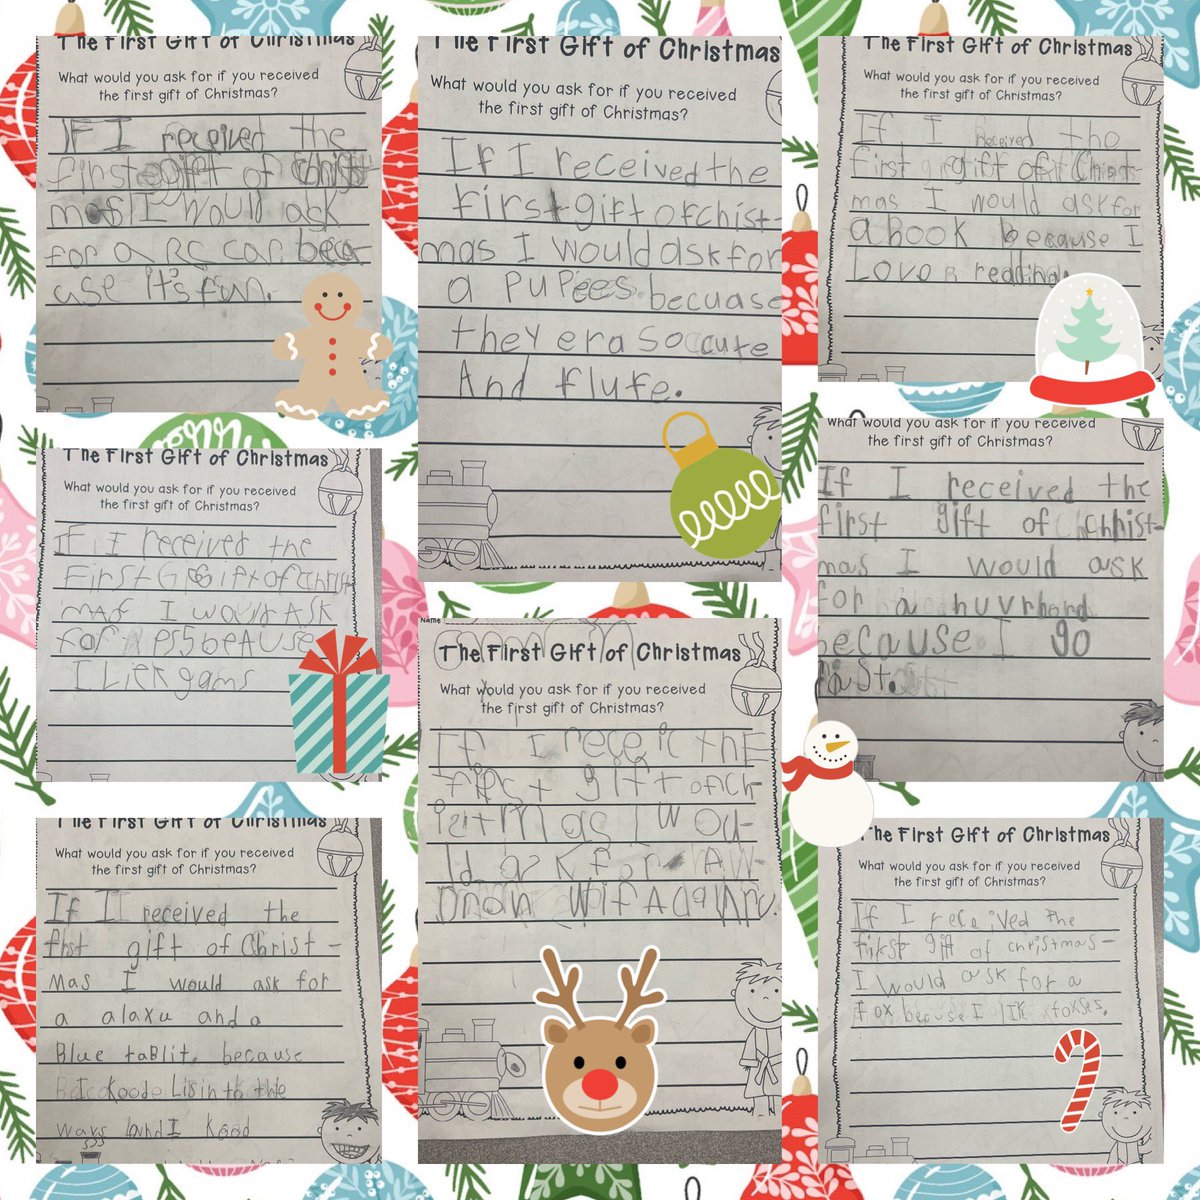 The First Gift of Christmas
What would you ask for if you received
the first gift of Christmas?
If I received the
first gift of christ
mas I would ask
for a RC car beca
use it's fun.
The First Gift of Christmas
What would you ask for if you received
the first gift of Christmas?
If I received the
first gift of chist-
mas I would ask for
a pupees becuase
they era so cute
And flufe.
The First Gift of Christmas
What would you ask for if you received
the first gift of Christmas?
If I received the
first gift of Christ-
mas I would ask for
a book because I
Love reading.
The First Gift of Christmas
What would you ask for if you received
the first gift of Christmas?
If I received the
First Gift of christ
mas I would Ask
for A PS5 beause
I Liek gams
What would you ask for if you received
the first gift of Christmas?
If I received the
first gift of christ-
mas I would ask
for a huvrbord
because I go
fast.
Name
The First Gift of Christmas
What would you ask for if you received
the first gift of Christmas?
If I
gift of ch-
mas I wou-
ld ask for A
The First Gift of Christmas
What would you ask for if you received
the first gift of Christmas?
If I received the
first gift of Christ-
mas I would ask for
a alaxu and a
Blue tablit. because
I kood Lisin to the
ways and I kood
The First Gift of Christmas
What would you ask for if you received
the first gift of Christmas?
If I received the
first gift of christmas-
I would ask for a
fox because I like foxses.
merry